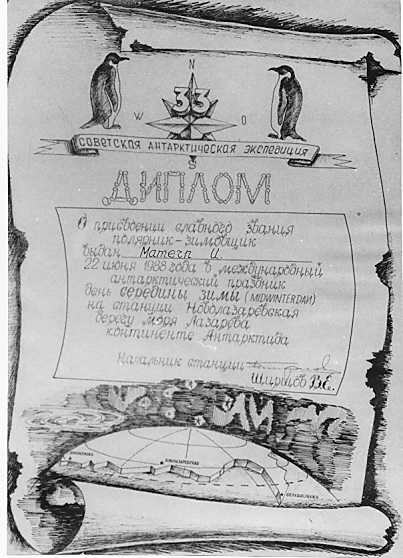 N
33
W O
СОВЕТСКАЯ АНТАРКТИЧЕСКАЯ ЭКСПЕДИЦИЯ
S
ДИПЛОМ
О присвоении славного звания
полярник-зимовщик
выдан Матегп И.
22 июня 1988 года в международный
антарктический праздник
день середины зимы (MIDWINTERDAY)
на станции Новолазаревская
берегу моря Лазарева
континенте Антарктида
Начальник станции
Ширшов В.Е.